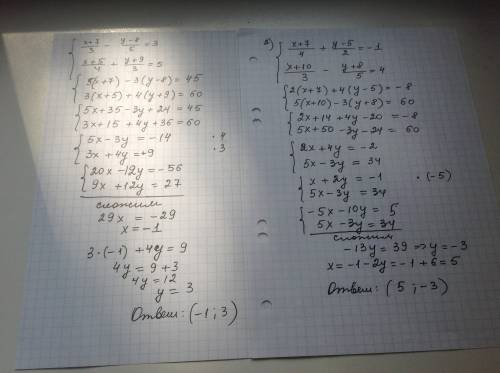 { (x+7)/3 - (y-8)/5 = 3
(x+5)/4 + (y+9)/3 = 5
{ 5(x+7) - 3(y-8) = 45
3(x+5) + 4(y+9) = 60
{ 5x+35-3y+24 = 45
3x+15 +4y+36 = 60
{ 5x - 3y = -14 · 4
3x + 4y = +9 · 3
{ 20x -12y = -56
9x +12y = 27
сложим
29x = -29
x = -1
3·(-1) +4y = 9
4y = 9+3
4y = 12
y = 3
Ответ: (-1; 3)
{ (x+7)/4 + (y-5)/2 = -1
(x+10)/3 - (y+8)/5 = 4
{ 2(x+7) + 4(y-5) = -8
5(x+10) - 3(y+8) = 60
{ 2x+14 +4y-20 = -8
5x+50 -3y-24 = 60
{ 2x+4y = -2
5x-3y = 34
{ x + 2y = -1 · (-5)
5x-3y = 34
{ -5x -10y = 5
5x -3y = 34
сложим
-13y = 39 => y = -3
x = -1-2y = -1+6 = 5
Ответ: (5; -3)